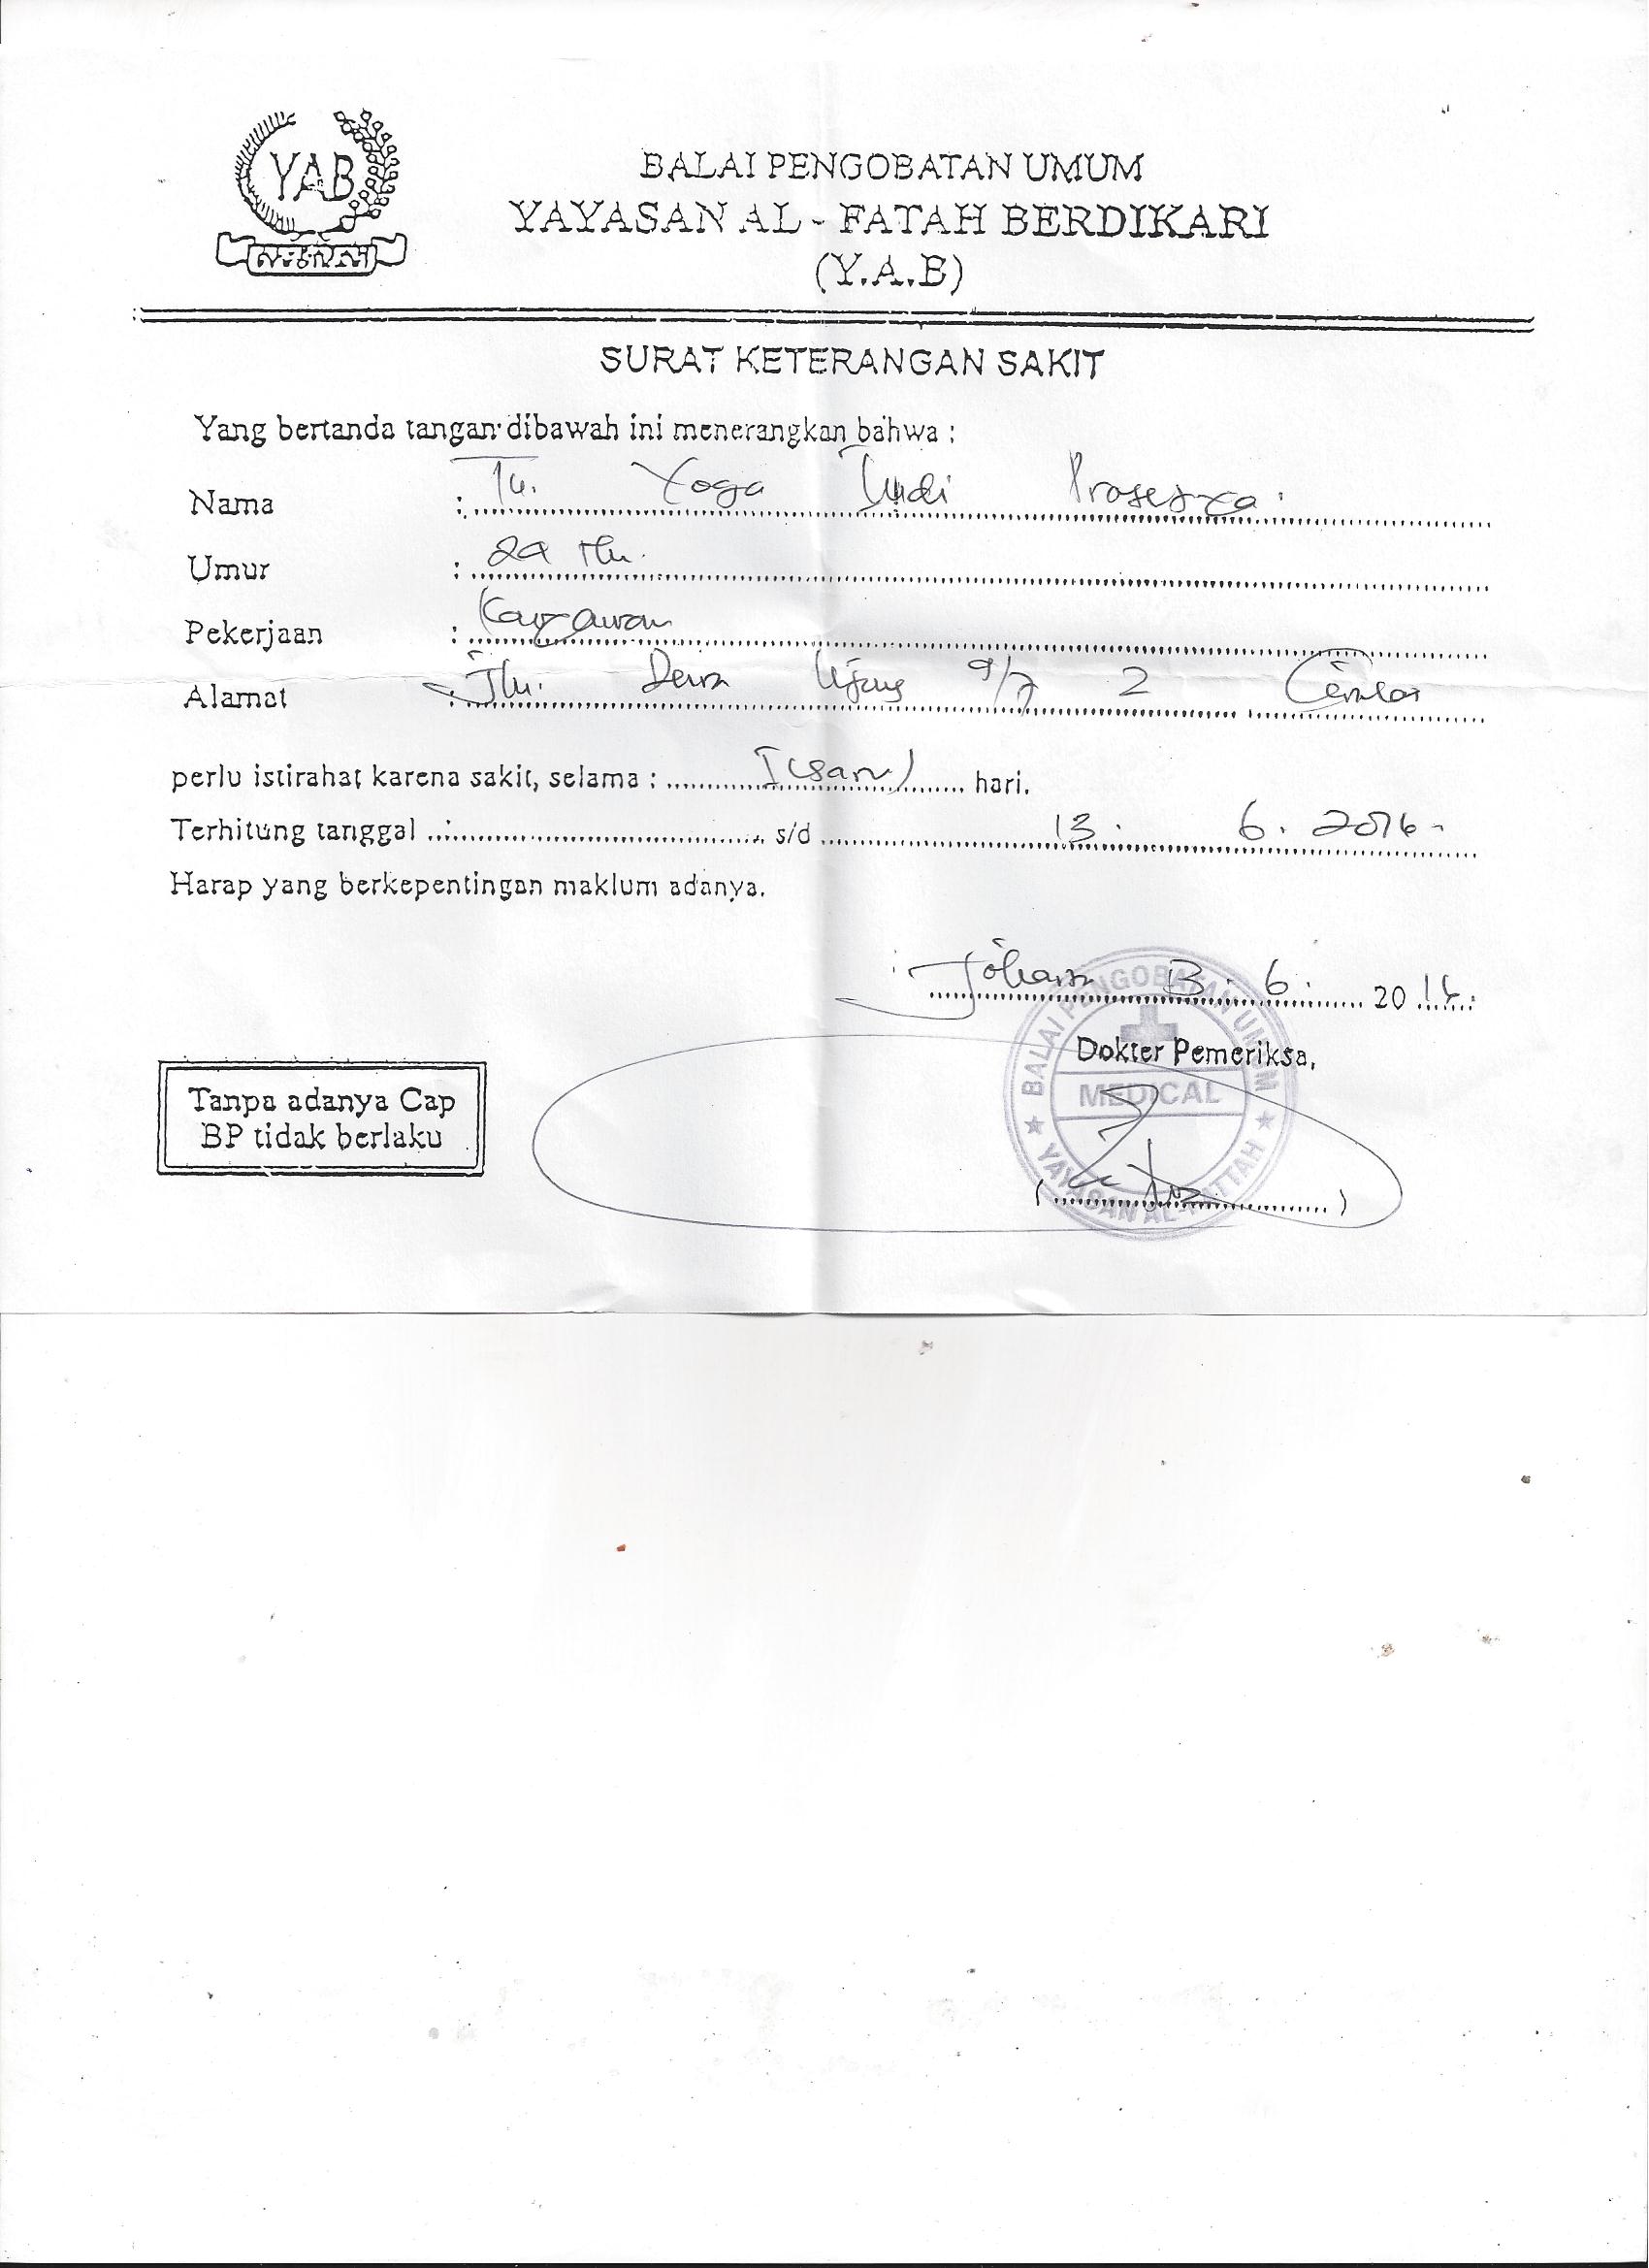 YAB
BALAI PENGOBATAN UMUM
YAYASAN AL - FATAH BERDIKARI
(Y.A.B)
SURAT KETERANGAN SAKIT
Yang bertanda tangan dibawah ini menerangkan bahwa :
Nama : Tn. Yoga Yudi Prasetya
Umur : 29 Th.
Pekerjaan : Karyawan
Alamat : Jln. Dewa Ujung 9/7 2
perlu istirahat karena sakit, selama : I (satu) hari.
Terhitung tanggal s/d 13. 6. 2016
Harap yang berkepentingan maklum adanya.
13. 6. 2016
Dokter Pemeriksa,
BALAI PENGOBATAN UMUM
MEDICAL
YAYASAN AL-FATTAH
Tanpa adanya Cap
BP tidak berlaku